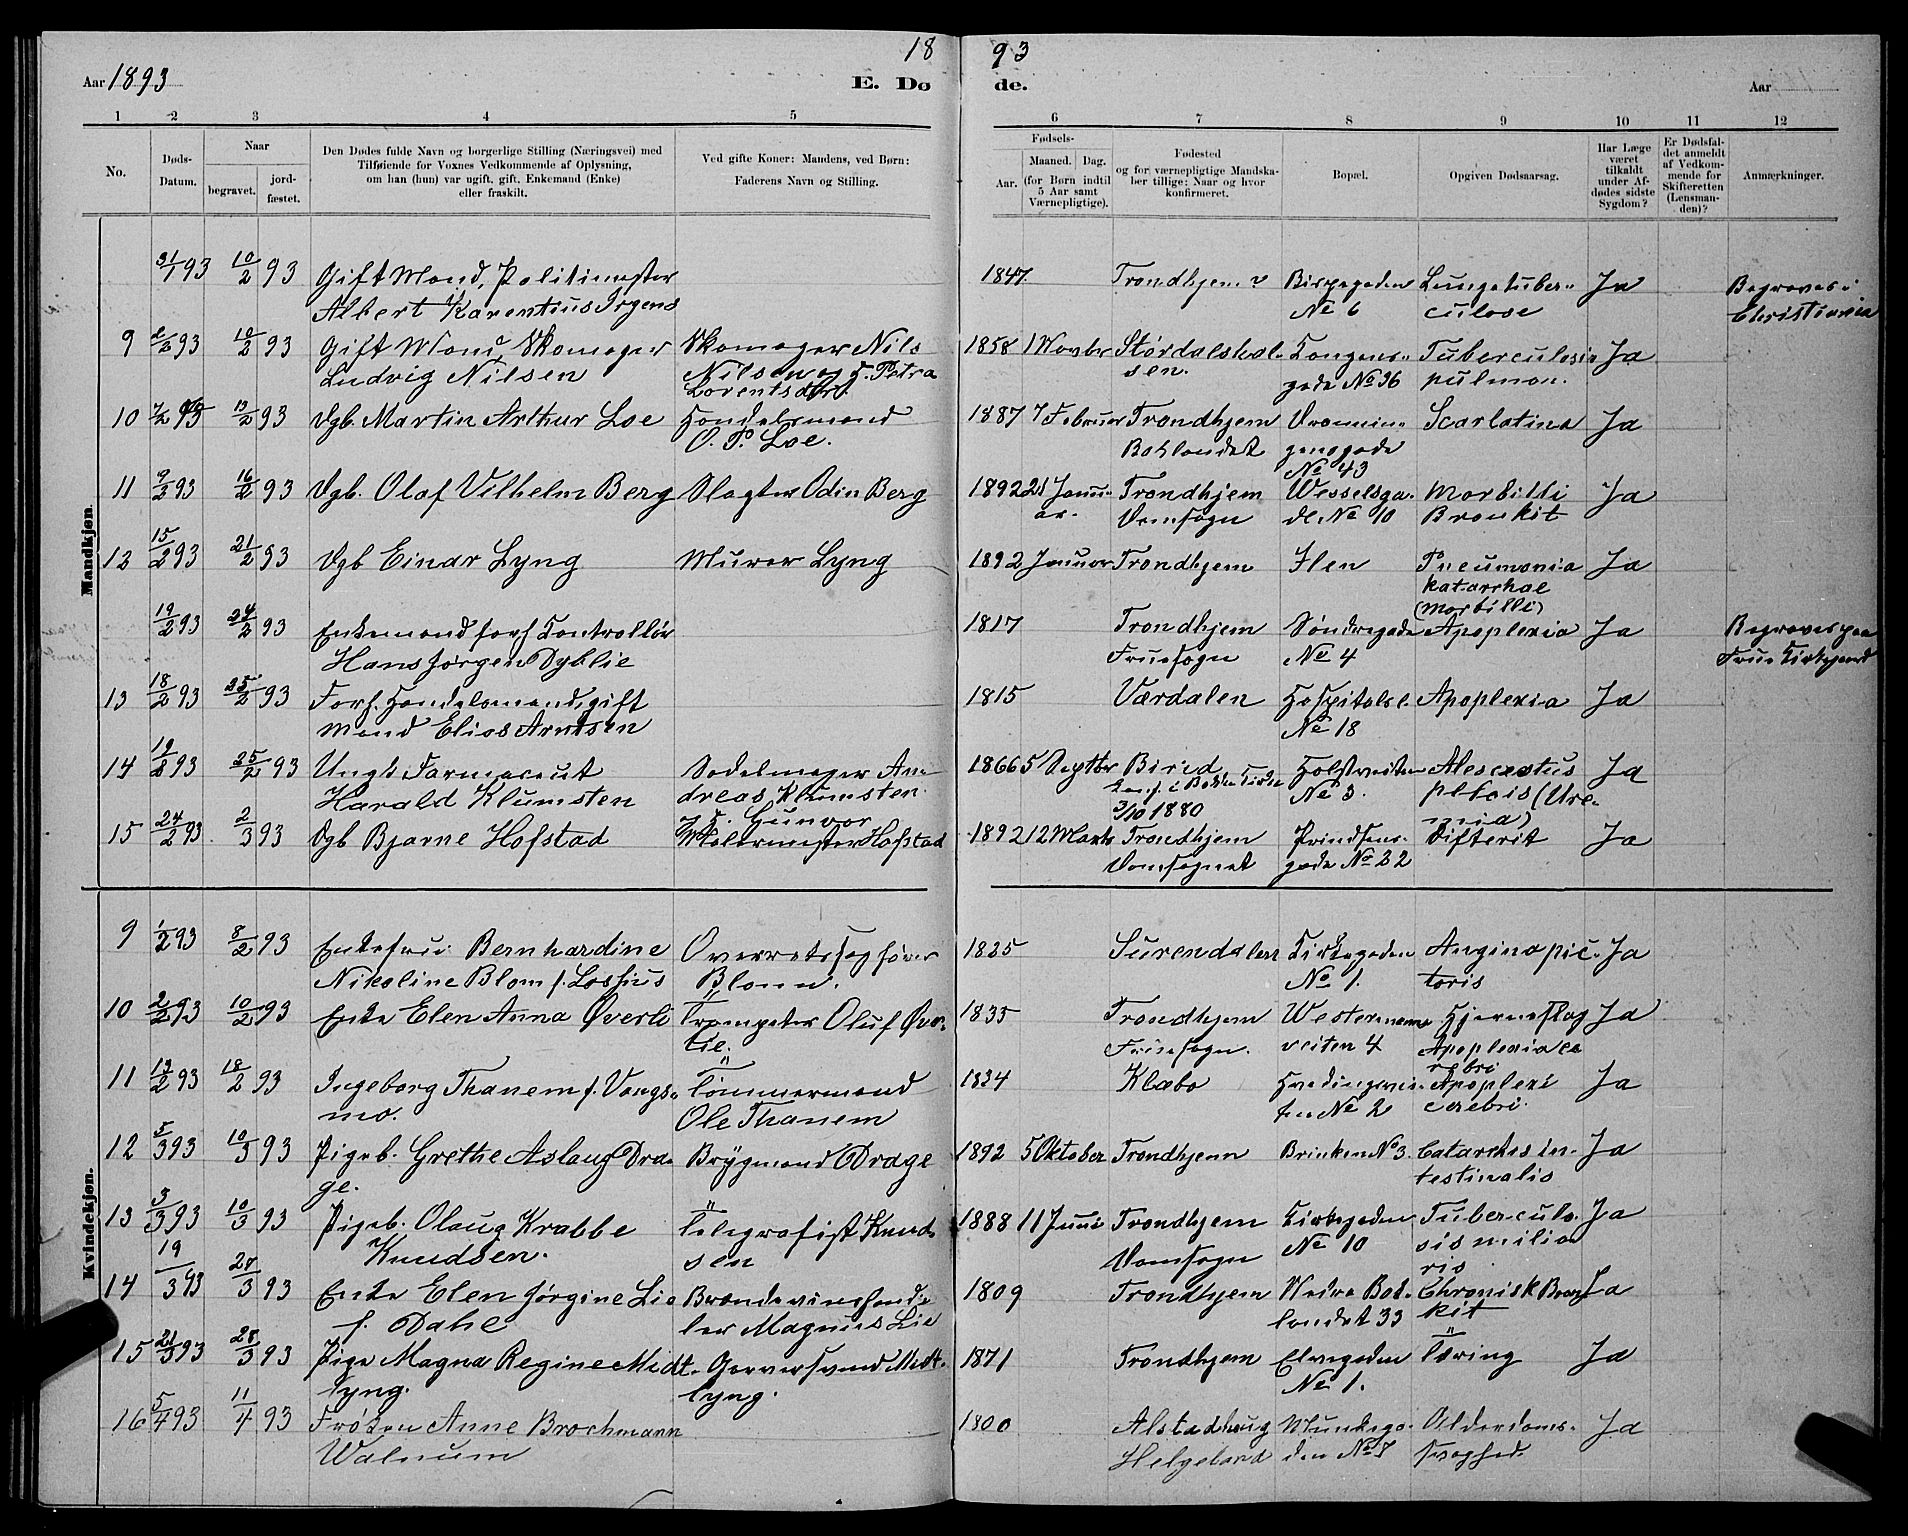 18 93
Aar 1893
E. Dø de.
Aar
1 2 3 4 5 6 7 8 9 10 11 12
No.
Døds-
Datum.
Naar
begravet.
jord-
fæstet.
Den Dødes fulde Navn og borgerlige Stilling (Næringsvei) med
Tilføiende for Voxnes Vedkommende af Oplysning,
om han (hun) var ugift, gift, Enkemand (Enke)
eller fraskilt.
Ved gifte Koner: Mandens, ved Børn:
Faderens Navn og Stilling.
Fødsels-
Aar.
Maaned. Dag.
(for Børn indtil
5 Aar samt
Værnepligtige).
Fødested
og for værnepligtige Mandska-
ber tillige: Naar og hvor
konfirmeret.
Bopæl.
Opgiven Dødsaarsag.
Har Læge
været
tilkaldt
under Af-
dødes sidste
Sygdom?
Er Dødsfal-
det anmeldt
af Vedkom-
mende for
Skifteretten
(Lensman-
den)?
Anmærkninger.
Mandkjøn.
31/1 93 10/2 93 Gift Mand, Politimester 1847. Trondhjem Bispegaden Lungetuber- Ja Begraves i
Albert Karentius Irgens No 6 culose Christiania
9 2/2 93 10/2 93 Gift Mand Skomager Skomager Nils 1858 1 Novbr Størdalshal- Kongens- Tuberculosis Ja
Ludvig Nilsen Nilsen og H. Petra sen. gade No 36 pulmon.
Lorentsdtr.
10 7/2 93 13/2 93 Dgb. Martin Arthur Loe Handelsmand 1887 7 Februar Trondhjem Dronnin- Scarlatina Ja
O. P. Loe. Baklandet gensgade
No 43
11 9/2 93 16/2 93 Dgb. Olaf Vilhelm Berg Slagter Odin Berg 1892 21 Janu- Trondhjem Wesselsga- Morbilli Ja
ar. Domsogn de No 10 Bronkit
12 15/2 93 21/2 93 Dgb Einar Lyng Murer Lyng 1892 Januar Trondhjem Ilen Pneumonia Ja
katarrhae
(morbilli)
19/2 93 24/2 93 Enkemand forh. Kontrollør 1817 Trondhjem Søndregade Apoplexia Ja Begraves paa
Hans Jørgen Dyblie Fruesogn No 4 Frue Kirkegaard
13 18/2 93 25/2 93 Forh. Handelsmand, gift 1815 Værdalen Hospitalsl. Apoplexia Ja
Mand Elias Arntsen No 18
14 19/2 93 25/2 93 Ungk. Farmaceut Sadelmager An- 1866 5 Septbr Birid Ja
Harald Klumsten dreas Klumsten. No 3.
Gunvor 3/10 1880
15 24/2 93. 2/3 93 Dgb Bjarne Hofstad Malermester Hofstad 1892 12 Marts Trondhjem Prindsens- Difterit Ja
Domsognet gade No 22
Kvindekjøn.
9 1/2 93 8/2 93 Enkefrue Bernhardine Overretssagfører 1835 Surendalen Kirkegaden Angina pec- Ja
Nikoline Blom f. Lossius Blom. No 1. toris
10 2/2 93 10/2 93 Enke Elen Anna Øverli Trompeter Oluf Øver- 1835 Trondhjem Westermanns Hjerneslag Ja
lie. Fruesogn. veiten 4 Apoplexia ce
rebri
11 13/2 93 18/2 93 Ingeborg Thanem f. Vongs- Tømmermand 1834 Klæbo Hvedingsvei- Apoplexi Ja
mo. Ole Thanem ten No 2 cerebri.
12 5/3 93 10/3 93 Pigeb. Grethe Aslaug Dra- Brygmand Drage 1892 5 Oktober Trondhjem Brinken No 3. Catarrhus in- Ja
ge. testinalis
13 3/3 93 10/3 93 Pigeb. Olaug Krabbe Telegrafist Knud- 1888 11 Juni Trondhjem Kirkegaden Tubercule- Ja
Knudsen. sen Domsogn No 10 sis milia
ris
14 19/3 93 28/3 93 Enke Elen Jørgine Lie Brændevinshand- 1809 Trondhjem Nedre Bak- Chronisk Bron Ja
f. Dahl ler Magnus Lie landet 33 kit
15 21/3 93 28/3 93 Pige Magna Regine Midt- Garversvend Midt- 1871 Trondhjem Elvegaden Tæring Ja
lyng. lyng. No 1.
16 5/4 93 11/4 93 Frøken Anne Brochmann 1800 Alstadhaug Munkega- Alderdoms- Ja
Walnum Helgeland den No 7 svaghed.